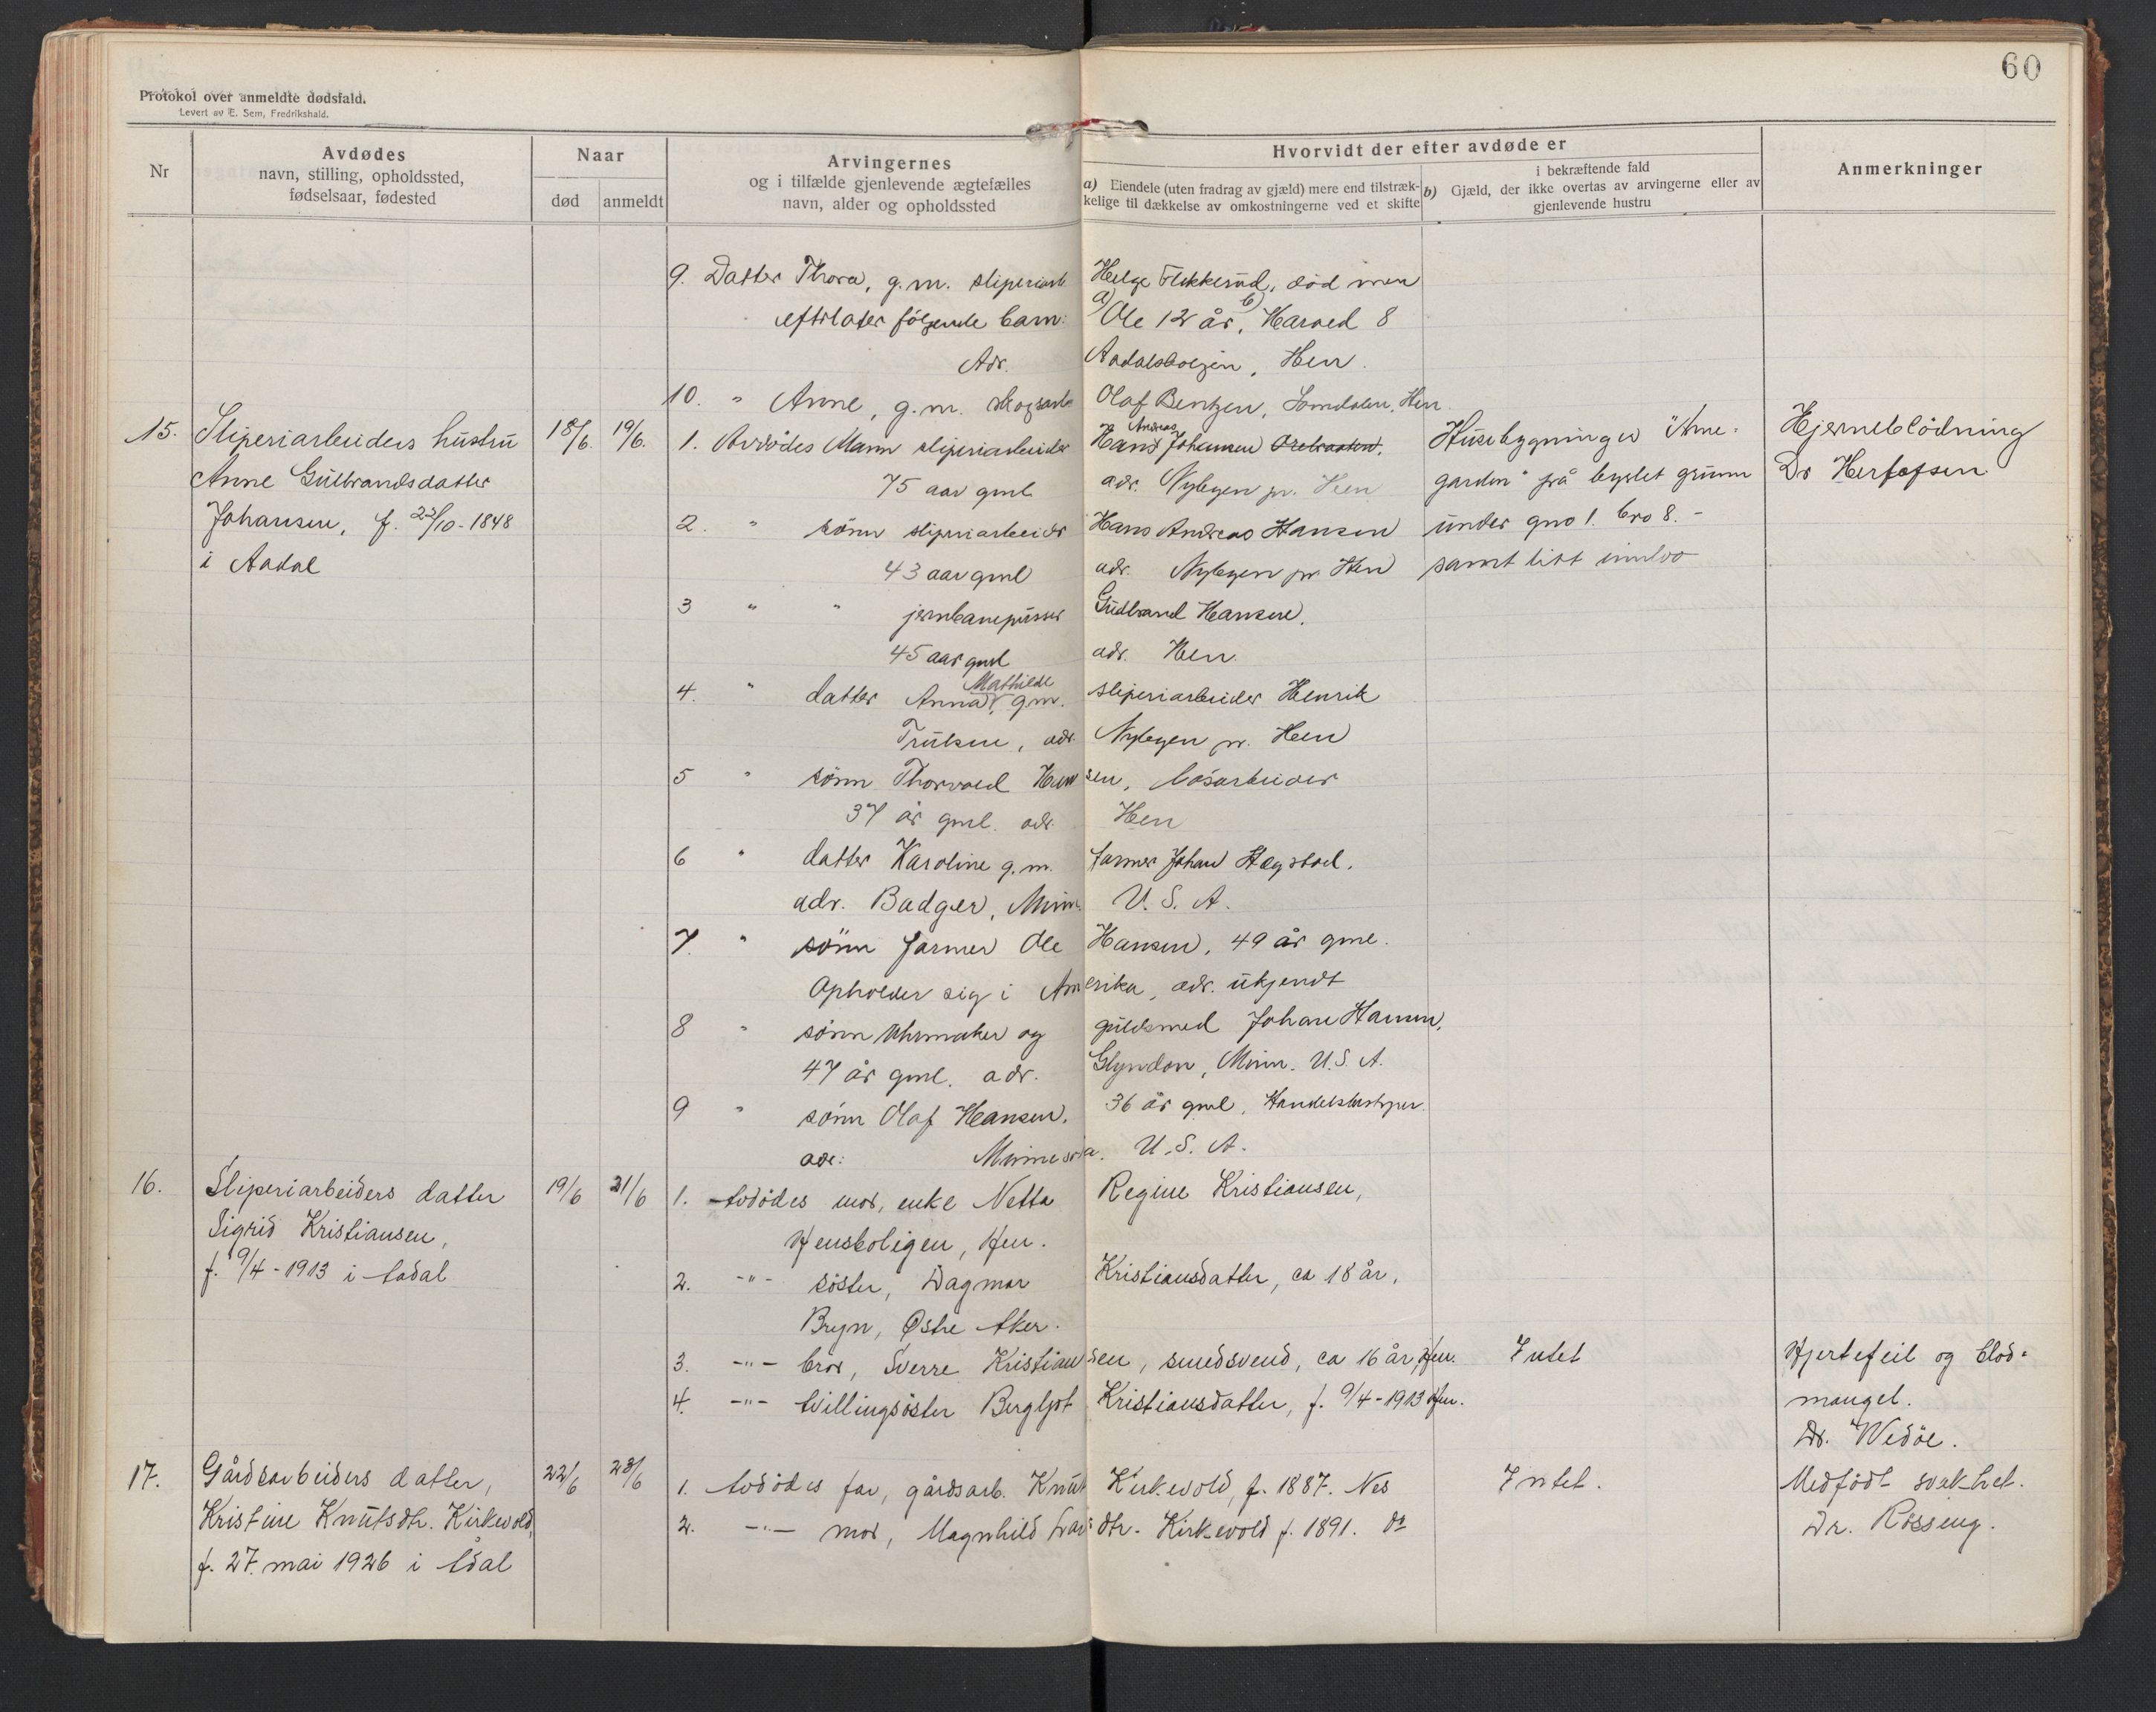 60
Protokol over anmeldte dødsfald.
Levert av E. Sem, Fredrikshald.
Nr
Avdødes
navn, stilling, opholdssted,
fødselsaar, fødested
Naar
død
anmeldt
Arvingernes
og i tilfælde gjenlevende ægtefælles
navn, alder og opholdssted
Hvorvidt der efter avdøde er
a) Eiendele (uten fradrag av gjæld) mere end tilstræk-
kelige til dækkelse av omkostningerne ved et skifte
i bekræftende fald
b) Gjæld, der ikke overtas av arvingerne eller av
gjenlevende hustru
Anmerkninger
9. Datter Thora, g.m. sliperiarb. Helge Flikkerud, død men
efterlater følgende barn: a) Ole 12 år, b) Harald 8
Adr. Aadalsboligen, Hen.
10. " Anne, g.m. skogsarb. Olaf Bentzen, Somdalen, Hen.
15. Sliperiarbeiders hustru
Anne Gulbrandsdatter
Johansen, f. 23/10-1848
i Aadal
18/6. 19/6.
1. Avdødes Mann sliperiarbeider Hans Andreas Johansen
75 aar gml. adr. Nybyen pr. Hen
2. " sönn sliperiarbeider Hans Andreas Hansen
43 aar gml adr. Nybyen pr. Hen
3 " " jernbanepusser Gudbrand Hansen.
45 aar gml adr. Hen.
4. " datter Anna Mathilde, gm. sliperiarbeider Henrik
Trulsen, adr. Nybyen pr. Hen
5 " sönn Thorvald Hansen, løsarbeider
37 år gml. adr. Hen
6 " datter Karoline g.m. farmer Johan Hagstad.
adr. Badger, Minn. U.S.A.
7. " sönn farmer Ole Hansen, 49 år gml.
Opholder sig i Amerika, adr. ukjendt
8 " sönn Uhrmaker og guldsmed Johan Hansen,
47 år gml. adr. Glyndon, Minn. U.S.A.
9 " sönn Olaf Hansen. 36 år gml,
adr: Minnesota. U.S.A.
Husebygninger "Arne-
garden" på bygslet grunn
under gno 1. bro 8. -
samt litt innbo
Hjerneblödning
Dr
16. Sliperiarbeiders datter
Sigrid Kristiansen,
f. 9/4-1913 i Aadal
19/6 21/6
1. Avdødes mor, enke Netta Regine Kristiansen,
Hensboligen, Hen.
2. -"- søster, Dagmar Kristiansdatter, ca 18 år,
Bryn, Østre Aker.
3. -"- bror, Sverre Kristiansen, smedsvend, ca 16 år, Hen.
4. -"- tvillingsøster Bergljot Kristiansdatter, f. 9/4-1913 Hen.
Intet
Hjertefeil og blod-
mangel.
Dr. Wedøe.
17. Gårdsarbeiders datter,
Kristine Knutsdtr. Kirkevold,
f. 27. mai 1926 i Ådal
22/6 23/6
1. Avdødes far, gårdsarb. Knut Kirkevold, f. 1887. Nes
2. -"- mor, Magnhild Larsdtr. Kirkevold f. 1891. do
Intet.
Medfødt svakhet.
Dr. Røsseng.